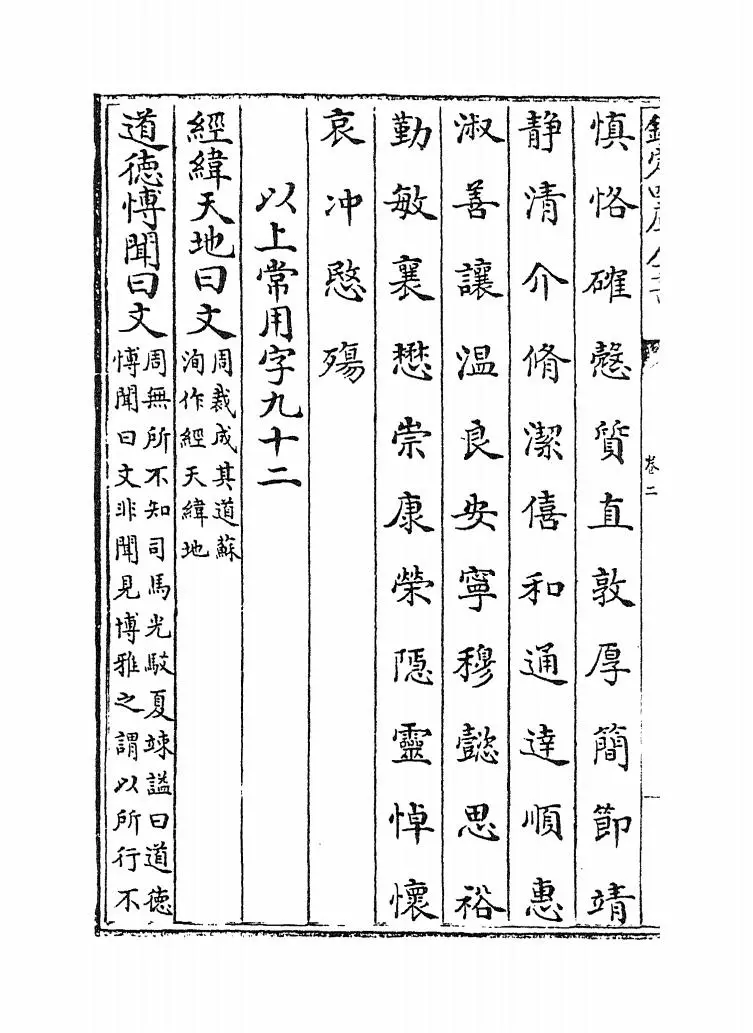 欽定四庫全書
卷二
慎恪確慤質直敦厚簡節靖
静清介脩潔僖和通達順惠
淑善讓温良安寧穆懿思裕
勤敏襄懋崇康榮隱靈悼懷
哀冲愍殤
以上常用字九十二
經緯天地曰文周裁成其道蘇
洵作經天緯地
道徳愽聞曰文周無所不知司馬光駮夏竦謚曰道徳
愽聞曰文非聞見博雅之謂以所行不